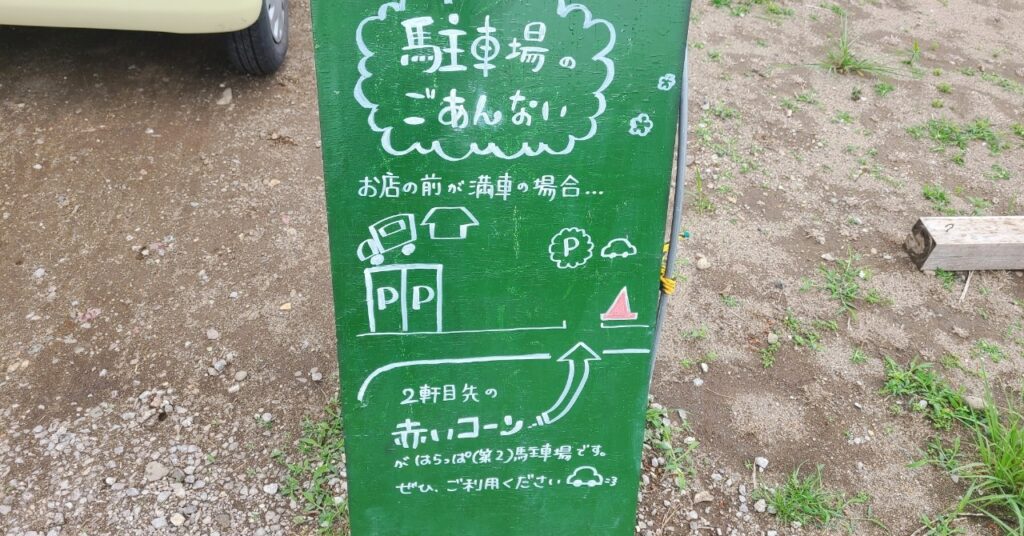 駐車場の
ごあんない
お店の前が満車の場合...
P
P P
2軒目先の
赤いコーン...
がはらっぱ(第2)駐車場です。
ぜひ、ご利用ください